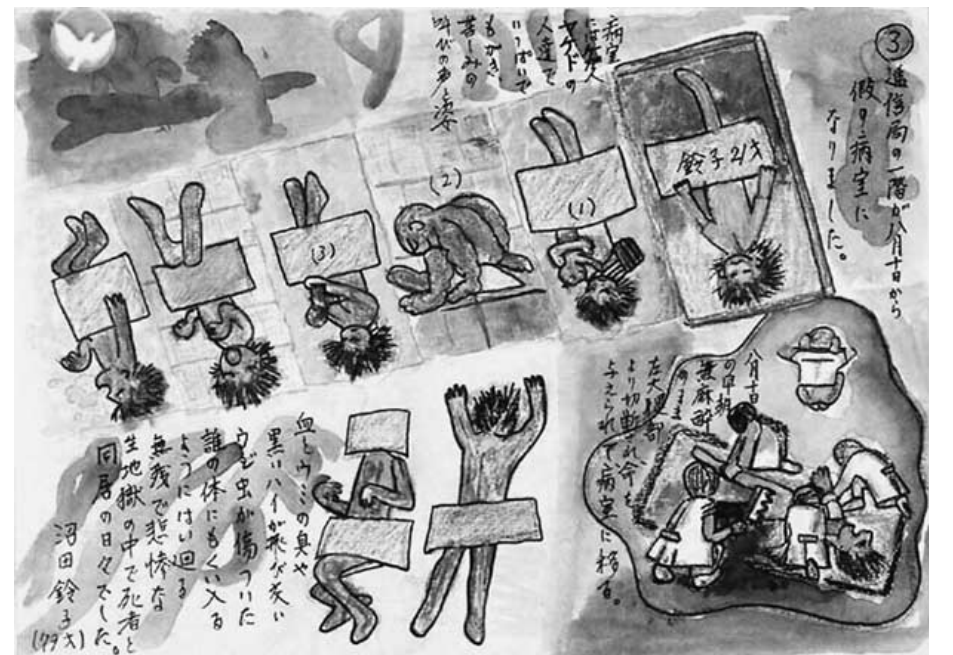 ③
逓信局の一階が八月十日から
假の病室に
なりました。
病室
には
ヤケドの
人達で
いっぱいで
もがき
苦しみの
叫びの声と姿
鈴子21才
(1)
(2)
(3)
八月十日
の早朝
無麻酔
のまま
左大腿部
より切断され命を
与えられて病室に移る。
血とウミの臭や
黒いハイが飛び交い
ウジ虫が傷ついた
誰の体にもくい入る
ようにはい回る
無残で悲惨な
生地獄の中で死者と
同居の日々でした。
沼田鈴子